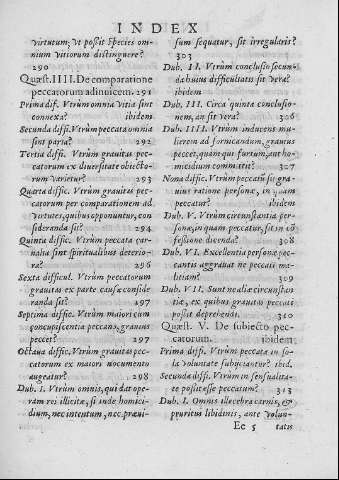 INDEX
virtutum, vt possit species om-
nium vitiorum distinguere?
290
Quæst. IIII. De comparatione
peccatorum adinuicem. 291
Prima dif. Vtrùm omnia vitia sint
connexa? ibidem
Secunda diffi. Vtrùm peccata omnia
sint paria? 292
Tertia diffi. Vtrùm grauitas pec-
catorum ex diuersitate obiecto-
rum varietur? 293
Quarta diffic. Vtrùm grauitas pec-
catorum per comparationem ad
virtutes, quibus opponuntur, con
sideranda sit? 294
Quinta diffic. Vtrùm peccata car-
nalia sint spiritualibus deterio-
ra? 296
Sexta difficul. Vtrùm peccatorum
grauitas ex parte causæ conside
randa sit? 297
Septima diffic. Vtrùm maiori cum
concupiscentia peccans, grauius
peccet? 297
Octaua diffic. Vtrùm grauitas pec-
catorum ex maiori nocumento
augeatur? 298
Dub. I. Vtrùm omnis, qui dat ope-
ram rei illicitæ, si inde homici-
dium, nec intentum, nec præui-
sum sequatur, sit irregularis?
303
Dub. II. Vtrùm conclusio secun
da huius difficultatis sit vera?
ibidem
Dub. III. Circa quintā conclusio-
nem, an sit vera? 306
Dub. IIII. Vtrùm inducens mu-
lierem ad fornicandum, grauius
peccet, quàm qui furtum, aut ho-
micidium committit? 307
Nona diffic. Vtrùm peccatū sit gra-
uius ratione personæ, in quam
peccatur? ibidem
Dub. V. Vtrùm circunstātia per-
sonæ, in quam peccatur, sit in cō
fessione dicenda? 308
Dub. VI. Excellentia personæ pec-
cantis aggrauat ne peccati ma-
litiam? 309
Dub. VII. Sunt ne aliæ circunstan
tiæ, ex quibus grauitas peccati
possit deprehendi? 310
Quæst. V. De subiecto pec-
catorum. ibidem
Prima diffi. Vtrùm peccata in so-
la voluntate subijciantur? ibid.
Secunda diffi. Vtrùm in sensualita-
te possit esse peccatum? 313
Dub. I. Omnis illecebra carnis, &
pruritus libidinis, ante volun-
Ee 5 tatis